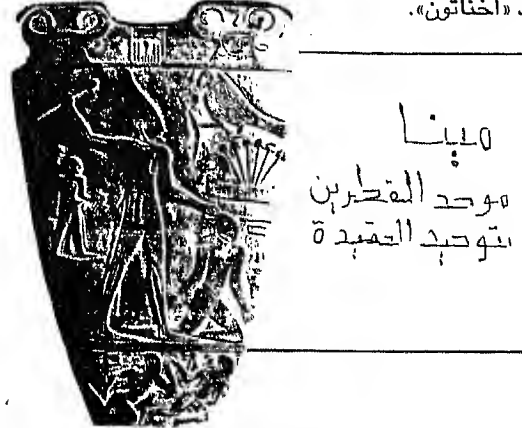 «أخناتون».
مينا
موحد القطرين
بتوحيد العقيدة